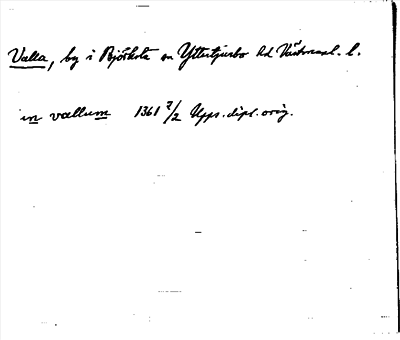 Valla, by i Björksta sn Yttertjurbo hd Västmanl. l.
in vallum 1361 7/2 Upps. dipl. orig.